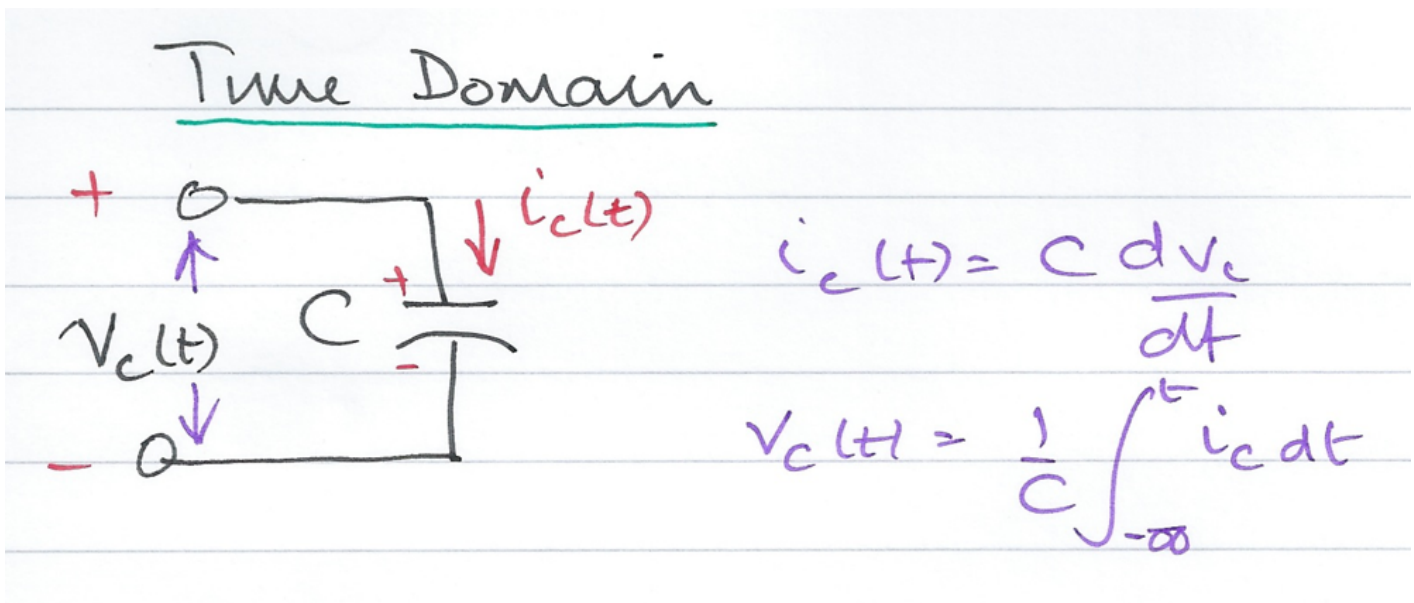 Time Domain
+ i_c(t)
+
C
V_c(t)
-
-
i_c(t) = C dv_c/dt
v_c(t) = 1/C ∫_{-∞}^{t} i_c dt